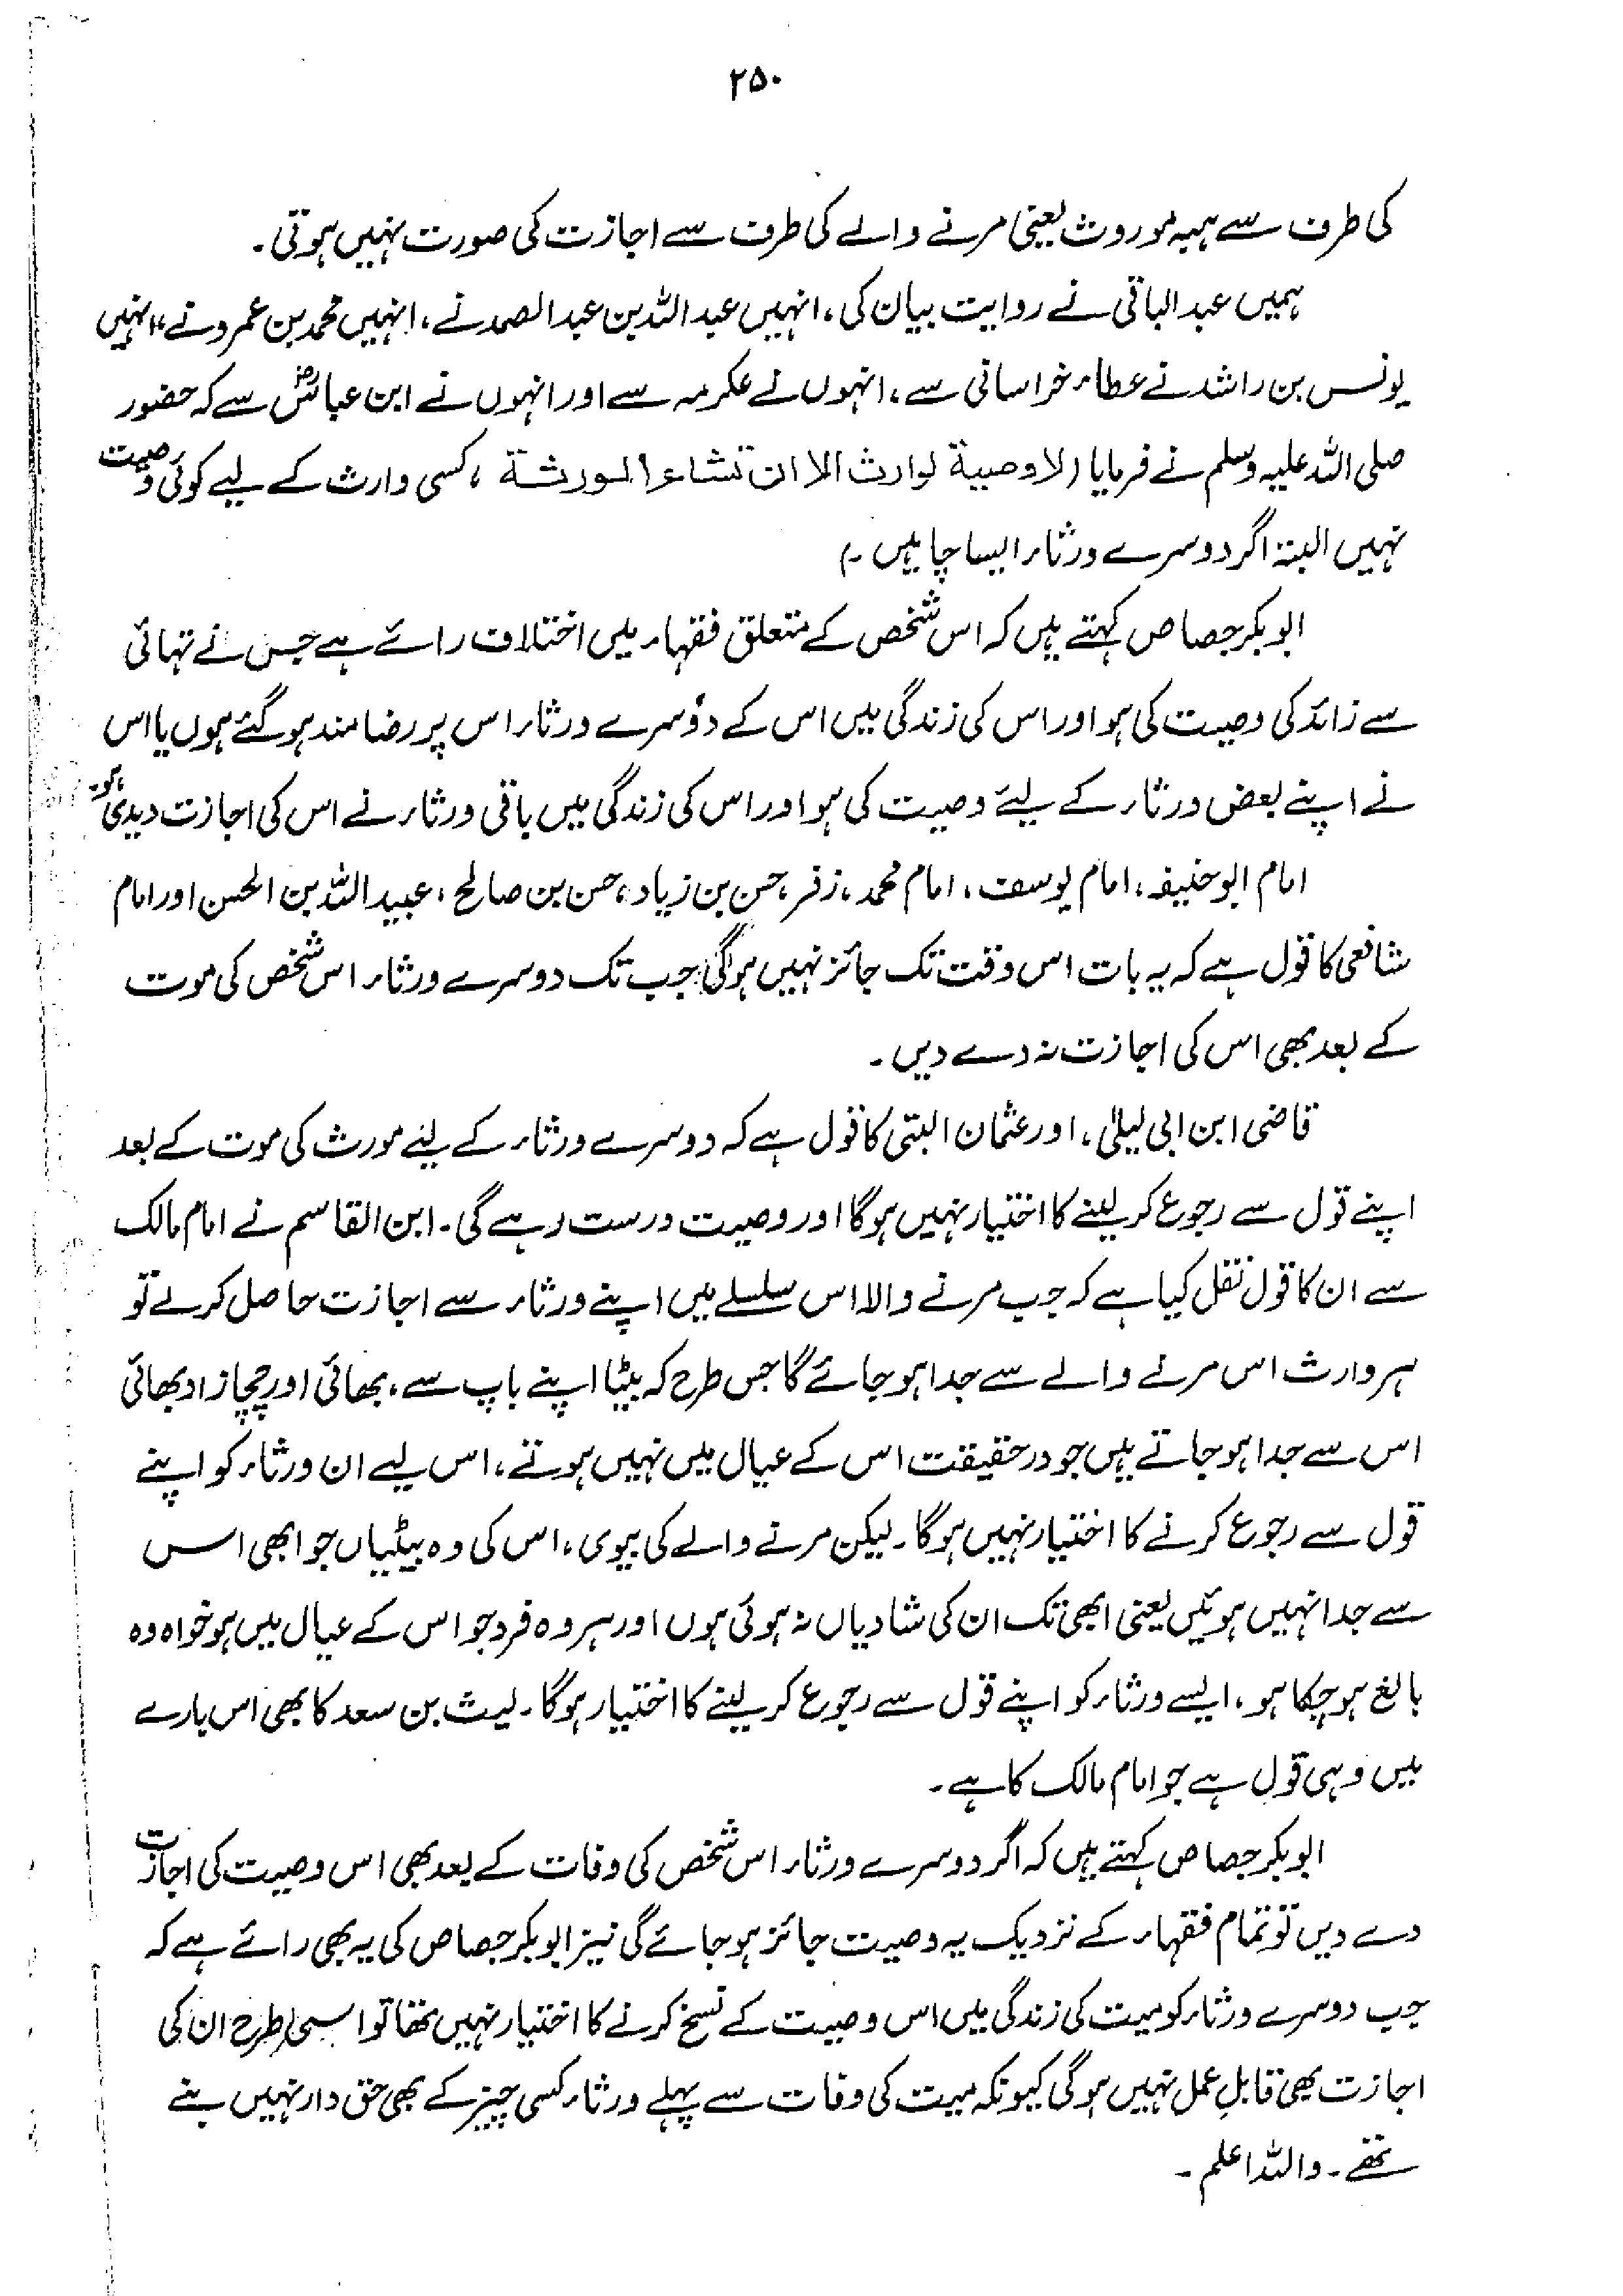 ۲۵۰
کی طرف سے ہبہ موروث یعنی مرنے والے کی طرف سے اجازت کی صورت نہیں ہوتی۔
ہمیں عبدالباقی نے روایت بیان کی، انہیں عبداللہ بن عبدالصمد نے، انہیں محمد بن عمرو نے، انہیں
یونس بن راشد نے عطاء خراسانی سے، انہوں نے عکرمہ سے اور انہوں نے ابن عباسؓ سے کہ حضور
صلی اللہ علیہ وسلم نے فرمایا (لا وصیة لوارث الا ان تشاء الورثة، کسی وارث کے لیے کوئی وصیت
نہیں البتہ اگر دوسرے ورثاء ایسا چاہیں۔)
ابوبکر جصاص کہتے ہیں کہ اس شخص کے متعلق فقہاء میں اختلاف رائے ہے جس نے تہائی
سے زائد کی وصیت کی ہو اور اس کی زندگی میں اس کے دوسرے ورثاء اس پر رضامند ہو گئے ہوں یا اس
نے اپنے بعض ورثاء کے لیے وصیت کی ہو اور اس کی زندگی میں باقی ورثاء نے اس کی اجازت دیدی ہو۔
امام ابوحنیفہ، امام یوسف، امام محمد، زفر، حسن بن زیاد، حسن بن صالح، عبیداللہ بن الحسن اور امام
شافعی کا قول ہے کہ یہ بات اس وقت تک جائز نہیں ہوگی جب تک دوسرے ورثاء اس شخص کی موت
کے بعد بھی اس کی اجازت نہ دے دیں۔
قاضی ابن ابی لیلیٰ، اور عثمان البتی کا قول ہے کہ دوسرے ورثاء کے لئے مورث کی موت کے بعد
اپنے قول سے رجوع کر لینے کا اختیار نہیں ہوگا اور وصیت درست رہے گی۔ ابن القاسم نے امام مالک
سے ان کا قول نقل کیا ہے کہ جب مرنے والا اس سلسلے میں اپنے ورثاء سے اجازت حاصل کرلے تو
ہر وارث اس مرنے والے سے جدا ہو جائے گا جس طرح کہ بیٹا اپنے باپ سے، بھائی اور چچازاد بھائی
اس سے جدا ہو جاتے ہیں جو درحقیقت اس کے عیال میں نہیں ہوتے، اس لیے ان ورثاء کو اپنے
قول سے رجوع کرنے کا اختیار نہیں ہوگا۔ لیکن مرنے والے کی بیوی، اس کی وہ بیٹیاں جو ابھی اس
سے جدا نہیں ہوئیں یعنی ابھی تک ان کی شادیاں نہ ہوئی ہوں اور ہر وہ فرد جو اس کے عیال میں ہو خواہ وہ
بالغ ہو چکا ہو، ایسے ورثاء کو اپنے قول سے رجوع کر لینے کا اختیار ہوگا۔ لیث بن سعد کا بھی اس بارے
میں وہی قول ہے جو امام مالک کا ہے۔
ابوبکر جصاص کہتے ہیں کہ اگر دوسرے ورثاء اس شخص کی وفات کے بعد بھی اس وصیت کی اجازت
دے دیں تو تمام فقہاء کے نزدیک یہ وصیت جائز ہو جائے گی نیز ابوبکر جصاص کی یہ بھی رائے ہے کہ
جب دوسرے ورثاء کو میت کی زندگی میں اس وصیت کے نسخ کرنے کا اختیار نہیں تھا تو اسی طرح ان کی
اجازت بھی قابلِ عمل نہیں ہوگی کیونکہ میت کی وفات سے پہلے ورثاء کسی چیز کے بھی حق دار نہیں بنے
تھے۔ واللہ اعلم۔